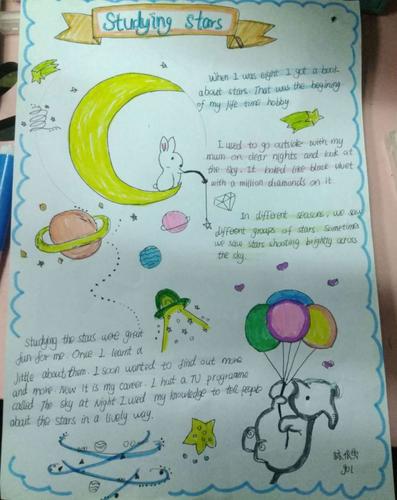 Studying Stars
When I was eight I got a book
about stars. That was the begining
of my life time hobby.
I used to go outside with my
mum on clear nights and look at
the sky. It looked like black velvet
with a million diamonds on it.
In different seasons, we saw
different groups of stars. Sometimes
we saw stars shooting brightly across
the sky.
Studying the stars were great
fun for me. Once I learnt a
little about them. I soon wanted to find out more
and more. Now it is my career. I host a TV programme
called The sky at Night. I used my knowledge to tell people
about the stars in a lively way.